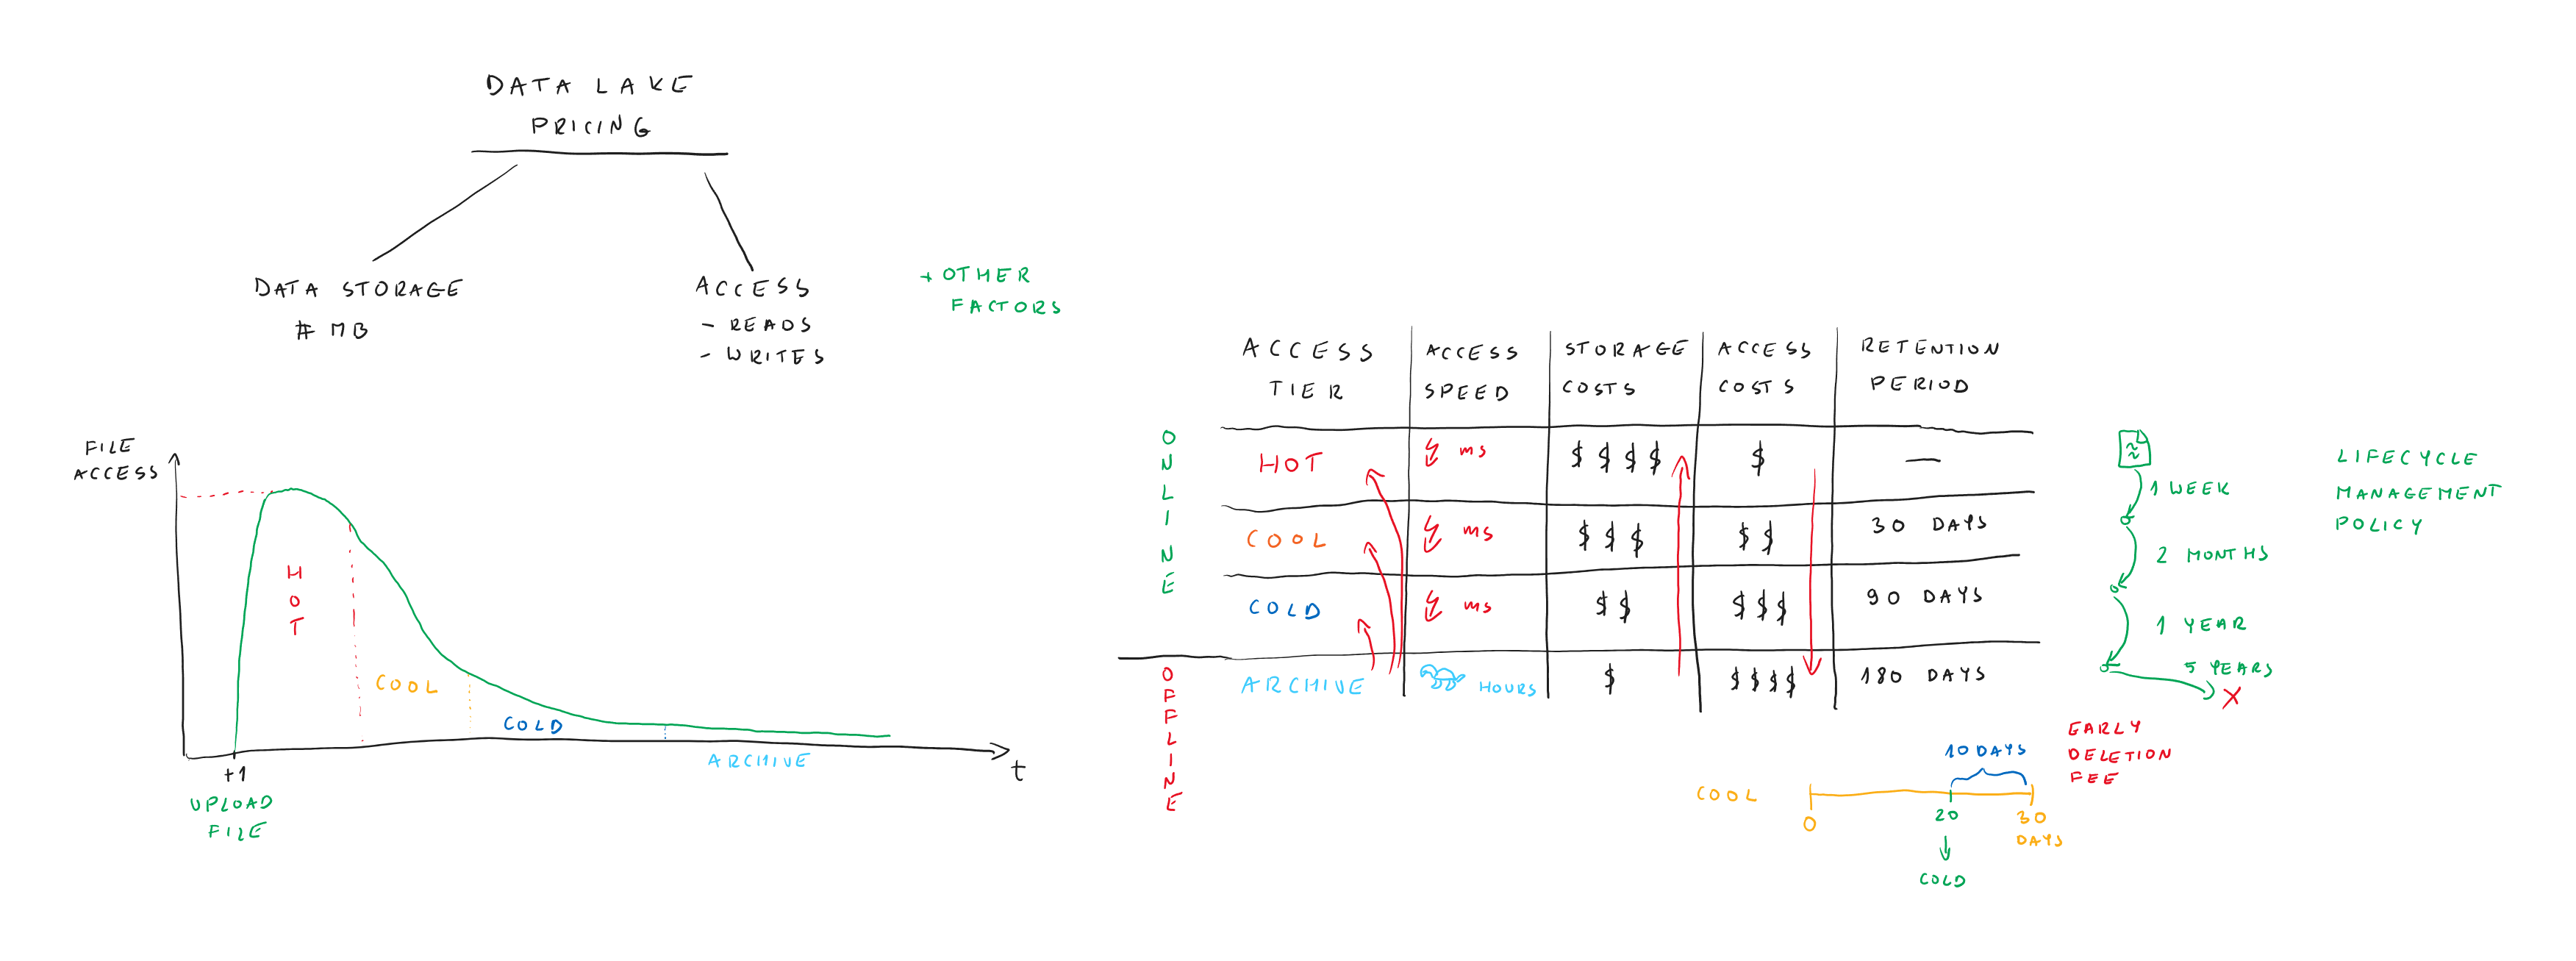 DATA LAKE
PRICING
DATA STORAGE
# MB
ACCESS
- READS
- WRITES
+ OTHER
FACTORS
FILE
ACCESS
HOT
COOL
COLD
ARCHIVE
t
+1
UPLOAD
FILE
ACCESS TIER
ACCESS SPEED
STORAGE COSTS
ACCESS COSTS
RETENTION PERIOD
ONLINE
HOT ms $$$$ $ —
COOL ms $$$ $$ 30 DAYS
COLD ms $$ $$$ 90 DAYS
OFFLINE
ARCHIVE HOURS $ $$$$ 180 DAYS
1 WEEK
2 MONTHS
1 YEAR
5 YEARS
X
LIFECYCLE
MANAGEMENT
POLICY
EARLY
DELETION
FEE
10 DAYS
COOL
0
20
30
DAYS
COLD